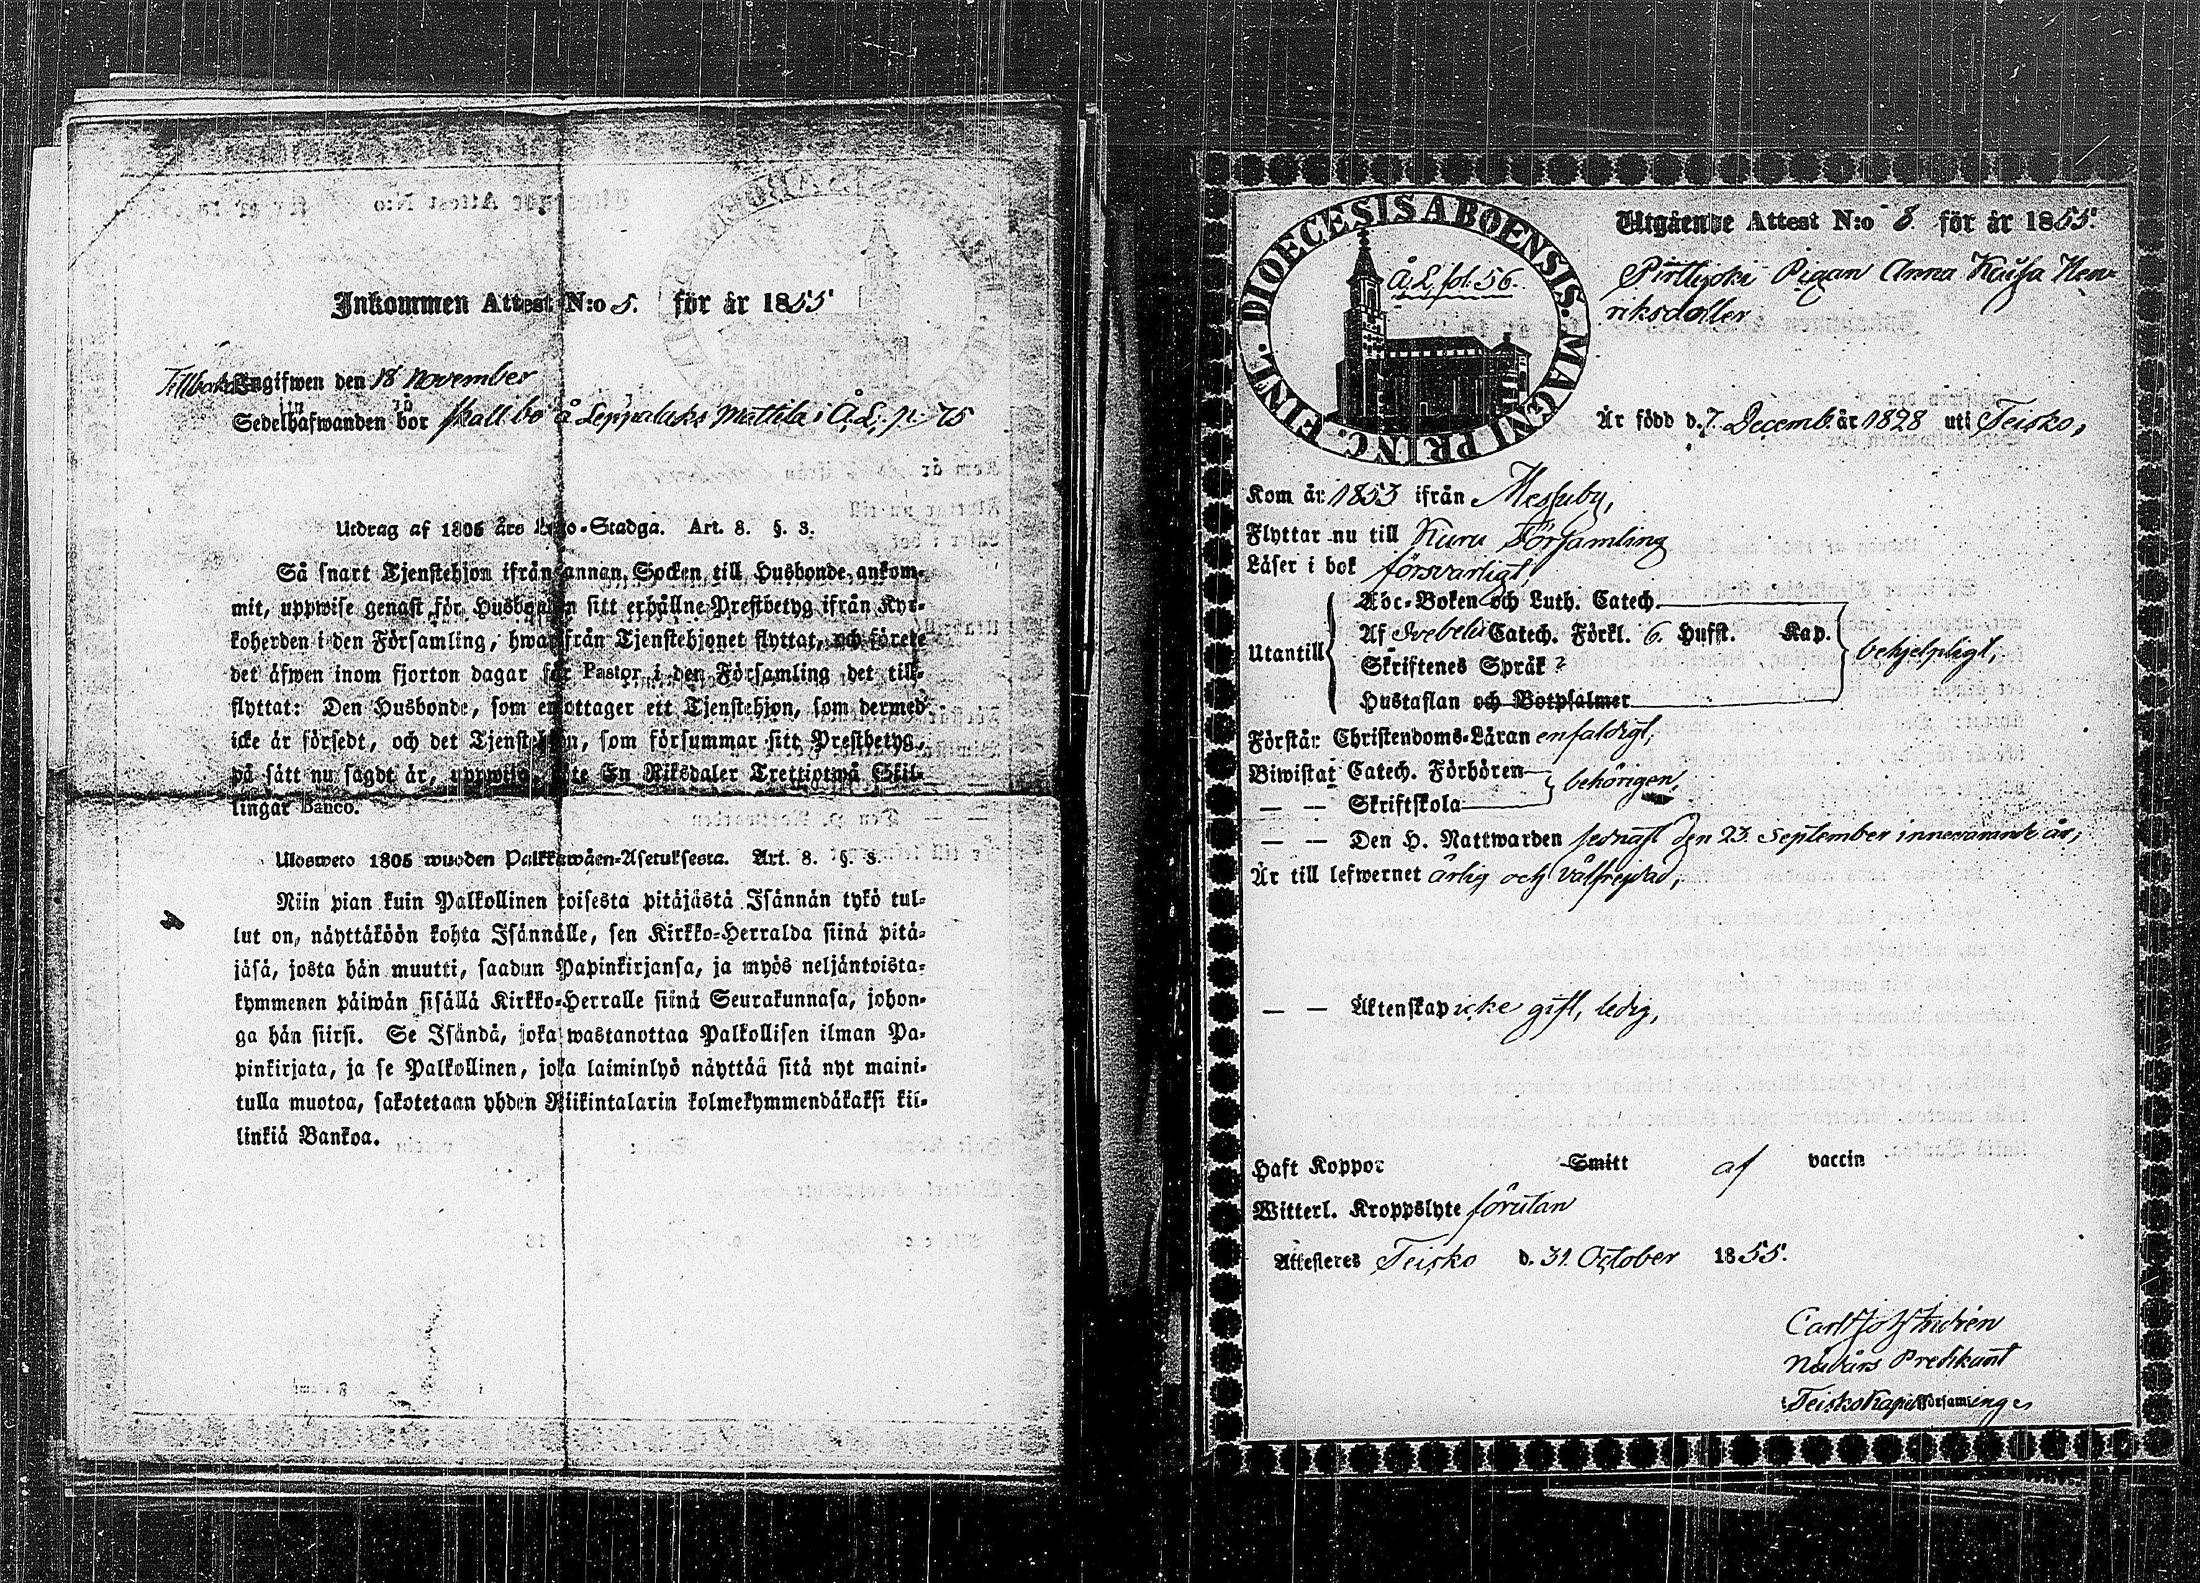 Inkommen Attest N:o 5. för år 1855
Ingifwen den 18 November
Sedelhafwanden bor skall bo å Leppälaks Mattila i Å.L. p. 75
Utdrag af 1805 års Lego-Stadga. Art. 8. §. 3.
Så snart Tjenstehjon ifrån annan Socken till Husbonde ankom-
mit, uppwise genast för Husbonden sitt erhållne Prestbetyg ifrån Kyr-
koherden i den Församling, hwarifrån Tjenstehjonet flyttat, och förete
det äfwen inom fjorton dagar för Pastor i den Församling det till-
flyttat: Den Husbonde, som emottager ett Tjenstehjon, som dermed
icke är försedt, och det Tjenstehjon, som försummar sitt Prestbetyg,
på sätt nu sagdt är, uppwisa, böte En Riksdaler Trettiotwå Skil-
lingar Banco.
Ulosweto 1805 wuoden Palkkawäen-Asetuksesta. Art. 8. §. 3.
Niin pian kuin Palkollinen toisesta pitäjästä Isännän tykö tul-
lut on, näyttäköön kohta Isännälle, sen Kirkko-Herralda siinä pitä-
jäsä, josta hän muutti, saadun Papinkirjansa, ja myös neljäntoista-
kymmenen päiwän sisällä Kirkko-Herralle siinä Seurakunnasa, johon-
ga hän siirsi. Se Isändä, joka wastanottaa Palkollisen ilman Pa-
pinkirjata, ja se Palkollinen, joka laiminlyö näyttää sitä nyt maini-
tulla muotoa, sakotetaan yhden Riikintalarin kolmekymmendäkaksi kil-
linkiä Bankoa.
DIOECESIS ABOENSIS. MAGNI PRINC. FINL.
Å.L. fol. 56.
Utgående Attest N:o 8. för år 1855.
Pigan Anna Kaisa Hen-
riksdotter
Är född d. 7. Decemb. år 1828 uti Teisko,
Kom år 1853 ifrån Messuby,
Flyttar nu till Kuru Församling
Läser i bok försvarligt,
Abc-Boken och Luth. Catech.
Utantill Af Svebelii Catech. Förkl. 6. Hufst. Kap. behjelpligt,
Skriftenes Språk
Hustaflan och Botpsalmer
Förstår Christendoms-Läran enfaldigt,
Biwistat Catech. Förhören behörigen,
— — Skriftskola
— — Den H. Nattwarden sednast den 23. September innevarande år,
Är till lefwernet ärlig och välfrejdad,
— — Äktenskap icke gift, ledig,
Haft Koppor Smitt af vaccin
Witterl. Kroppslyte förutan
Attesteres Teisko d. 31. October 1855.
Predikant